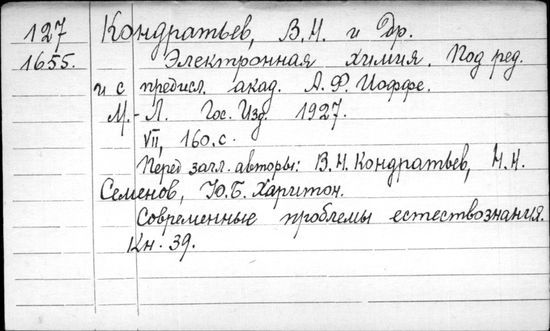 127 Кондратьев, В.Н. и др.
1655. Электронная химия. Под ред.
и с предисл. акад. А.Ф. Иоффе.
М.-Л. Гос. Изд. 1927.
VII, 160.с.
Перед загл. авторы: В.Н. Кондратьев, Н.Н.
Семенов, Ю.Б. Харитон.
Современные проблемы естествознания.
Кн. 39.